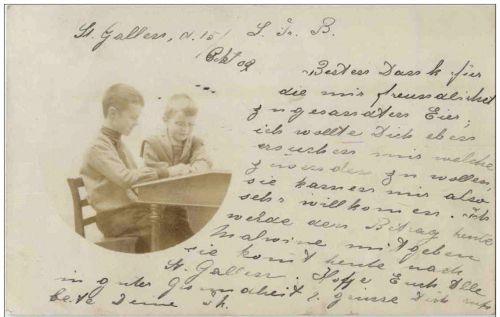 St. Gallen, d. 15/ L. Fr. B.
Okt 09
Besten Dank für
die mir freundlichst
zugesandten Eier;
ich wollte Dich eben
ersuchen mir welche
zusenden zu wollen,
sie kamen mir also
sehr willkommen. Ich
werde den Betrag heute
Malwine mitgeben
sie komt heute nach
St. Gallen. Hoffe, Euch Alle
in guter Gesundheit & grüsse Dich aufs
beste Deine Th.